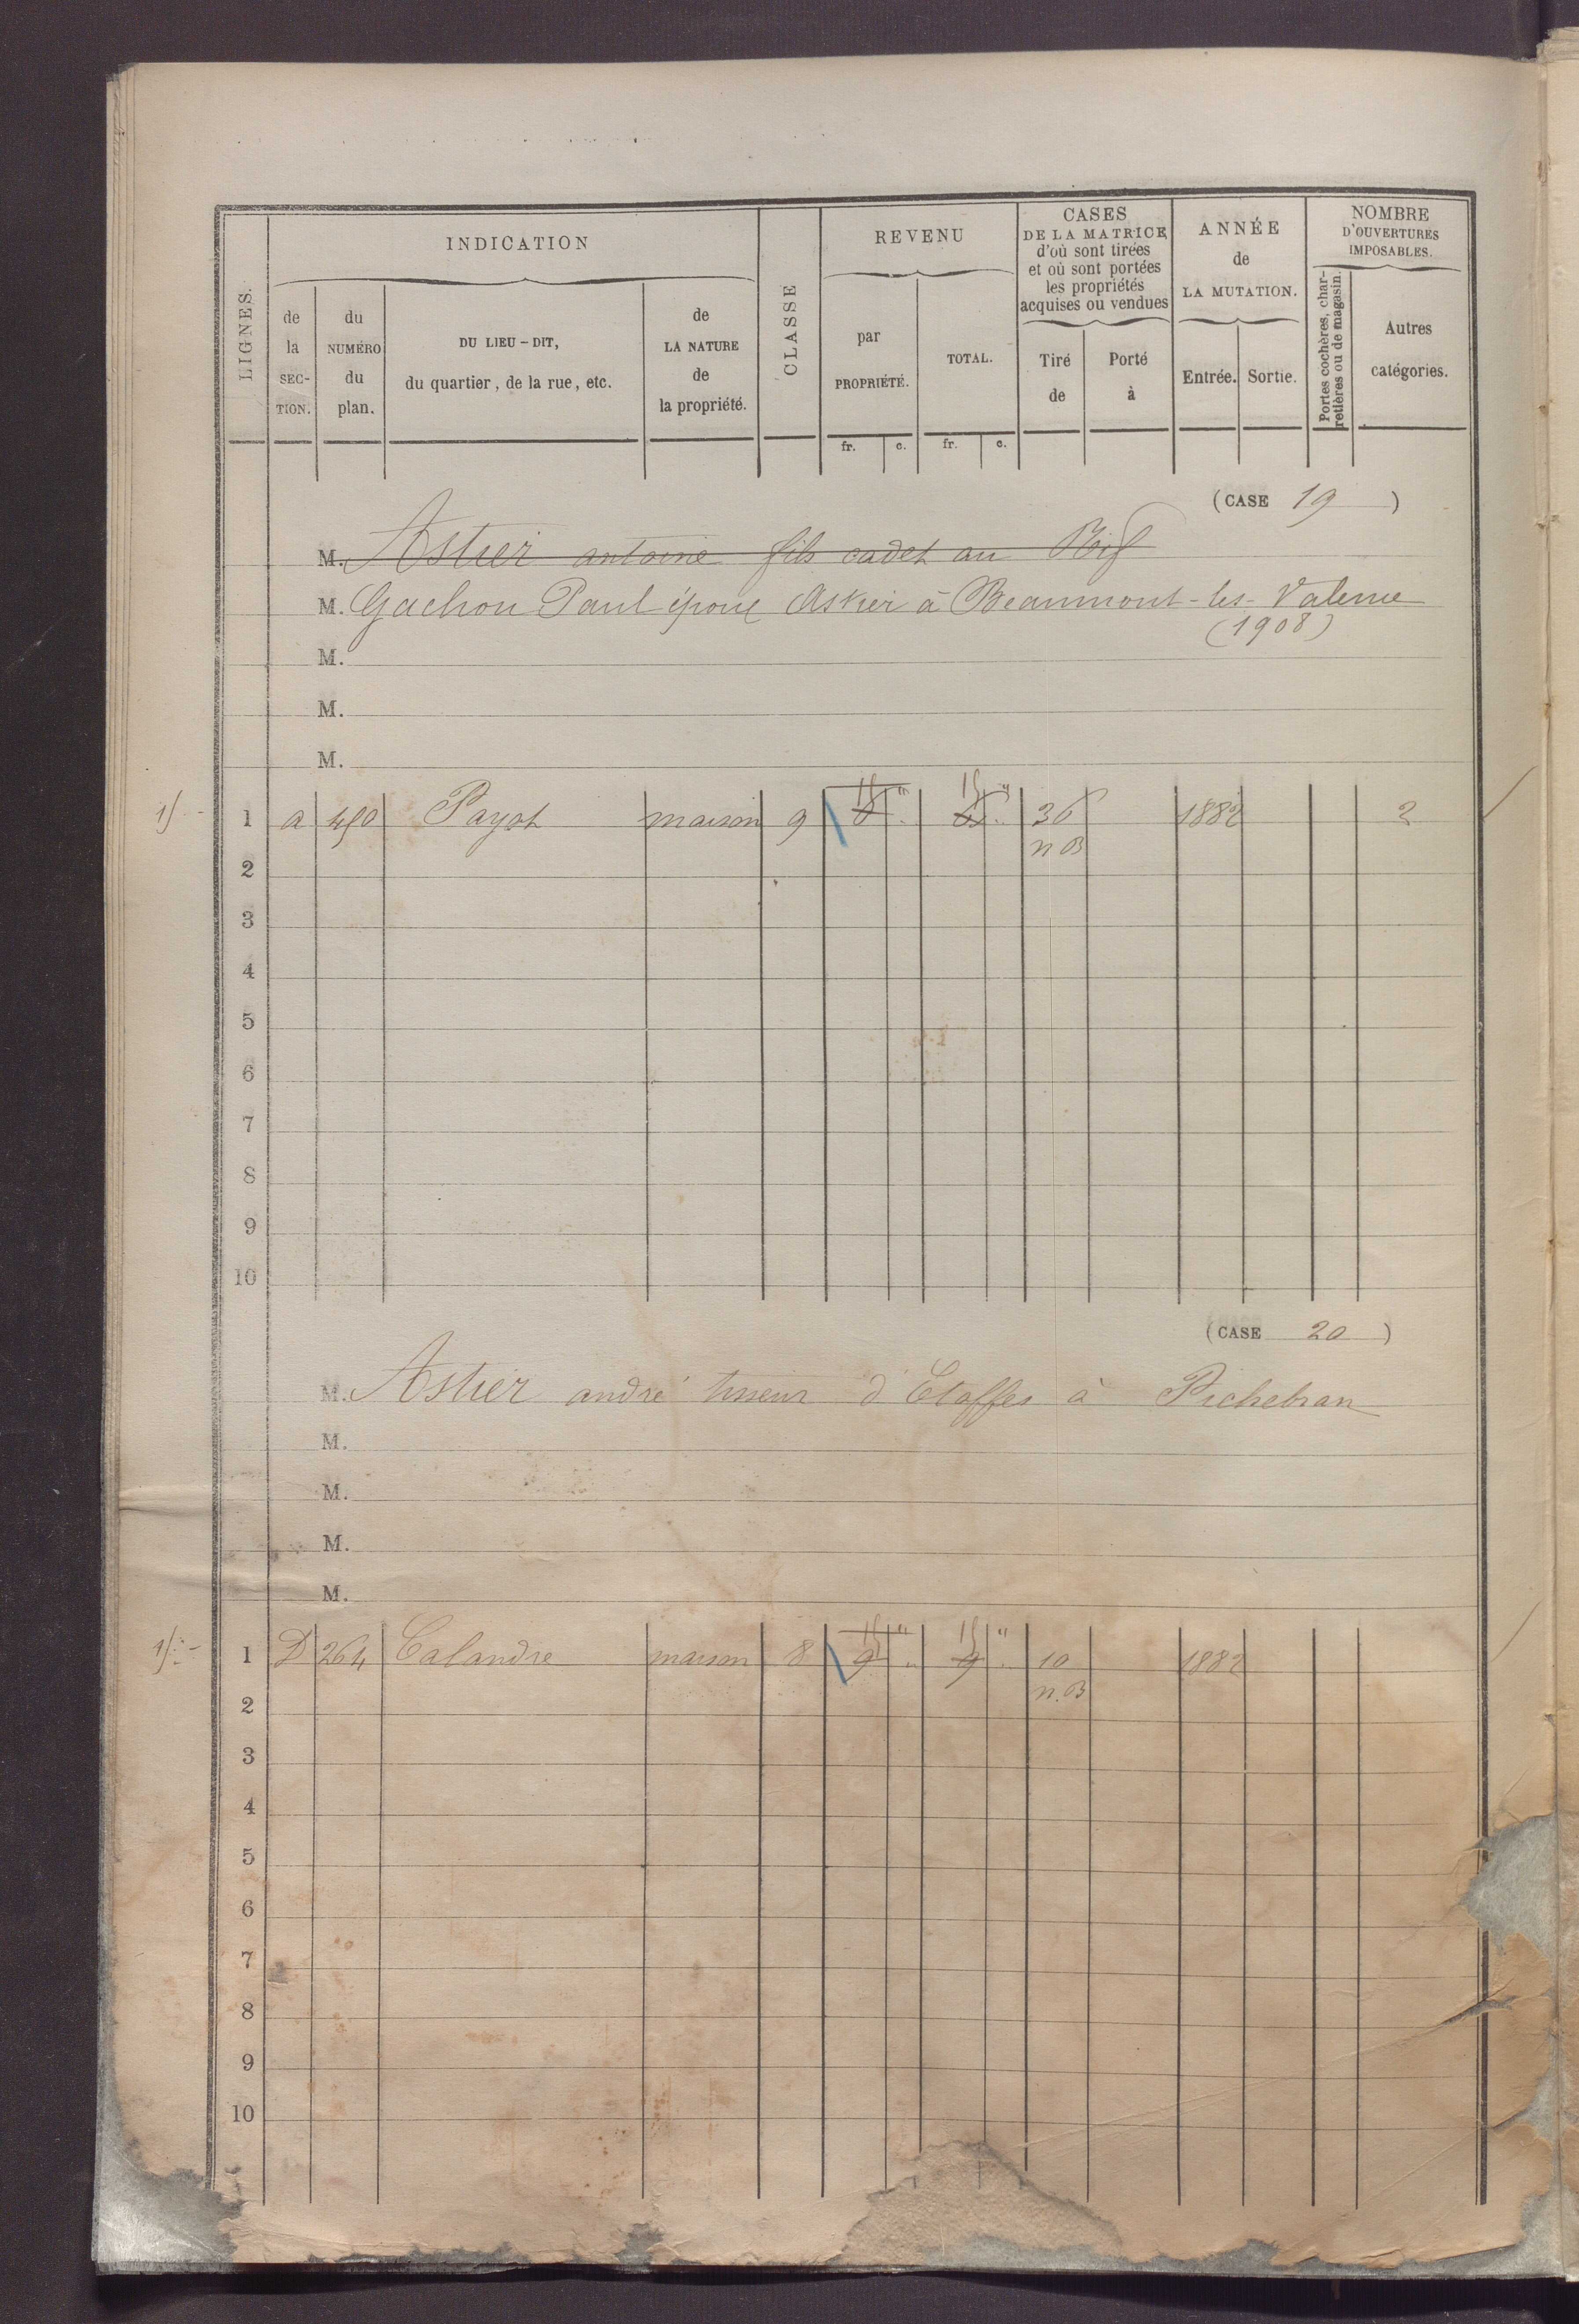 LIGNES.
INDICATION
de la SECTION.
du NUMÉRO du plan.
DU LIEU-DIT, du quartier, de la rue, etc.
de LA NATURE de la propriété.
CLASSE
REVENU
par PROPRIÉTÉ.
TOTAL.
fr. c. fr. c.
CASES DE LA MATRICE d'où sont tirées et où sont portées les propriétés acquises ou vendues
Tiré de
Porté à
ANNÉE de LA MUTATION.
Entrée. Sortie.
NOMBRE D'OUVERTURES IMPOSABLES.
Portes cochères, charretières ou de magasin.
Autres catégories.
(CASE 19)
M. Astier antoine fils cadet au
M. Gachon Paul époux Astier à Beaumont-les-Valence
(1908)
M.
M.
M.
15 "
15 "
1 a 450 Payot maison 9 36 1882 2
n B
2
3
4
5
6
7
8
9
10
(CASE 20)
M. Astier andré tisseur d'Etoffes à Pichebran
M.
M.
M.
M.
15 "
15 "
1 D 264 Calandre maison 8 9 " 9 " 10 1882
n.B
2
3
4
5
6
7
8
9
10